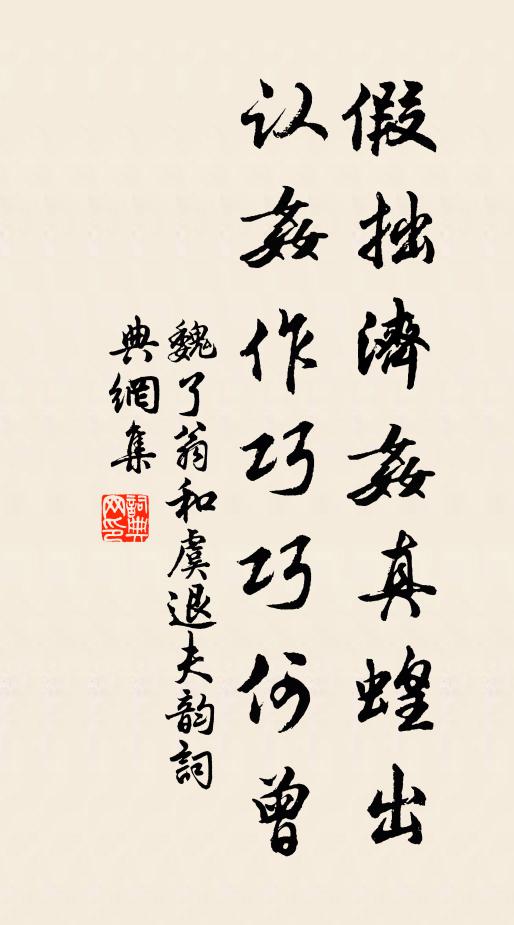 假拙濟姦真蝗出
认姦作巧巧何曾
魏了翁和虞退夫韵詞
典網集
詞典
网印